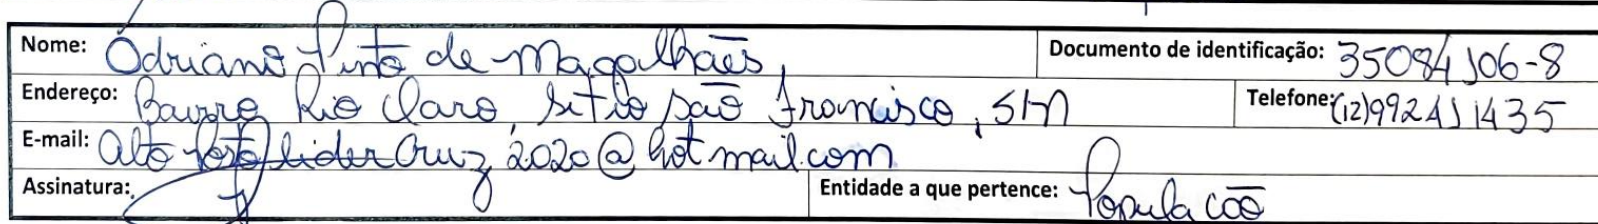 Nome: Adriano Pinto de Magalhães, Documento de identificação: 35084106-8
Endereço: Bairro Rio Claro, Sítio são Francisco, S/n Telefone: (12)992411435
E-mail: alto lider Cruz 2020@hotmail.com
Assinatura: Entidade a que pertence: População